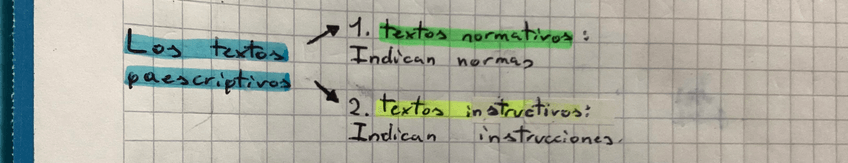 Los textos
paescriptivos
1. textos normativos:
Indican normas
2. textos instructivos:
Indican instrucciones.